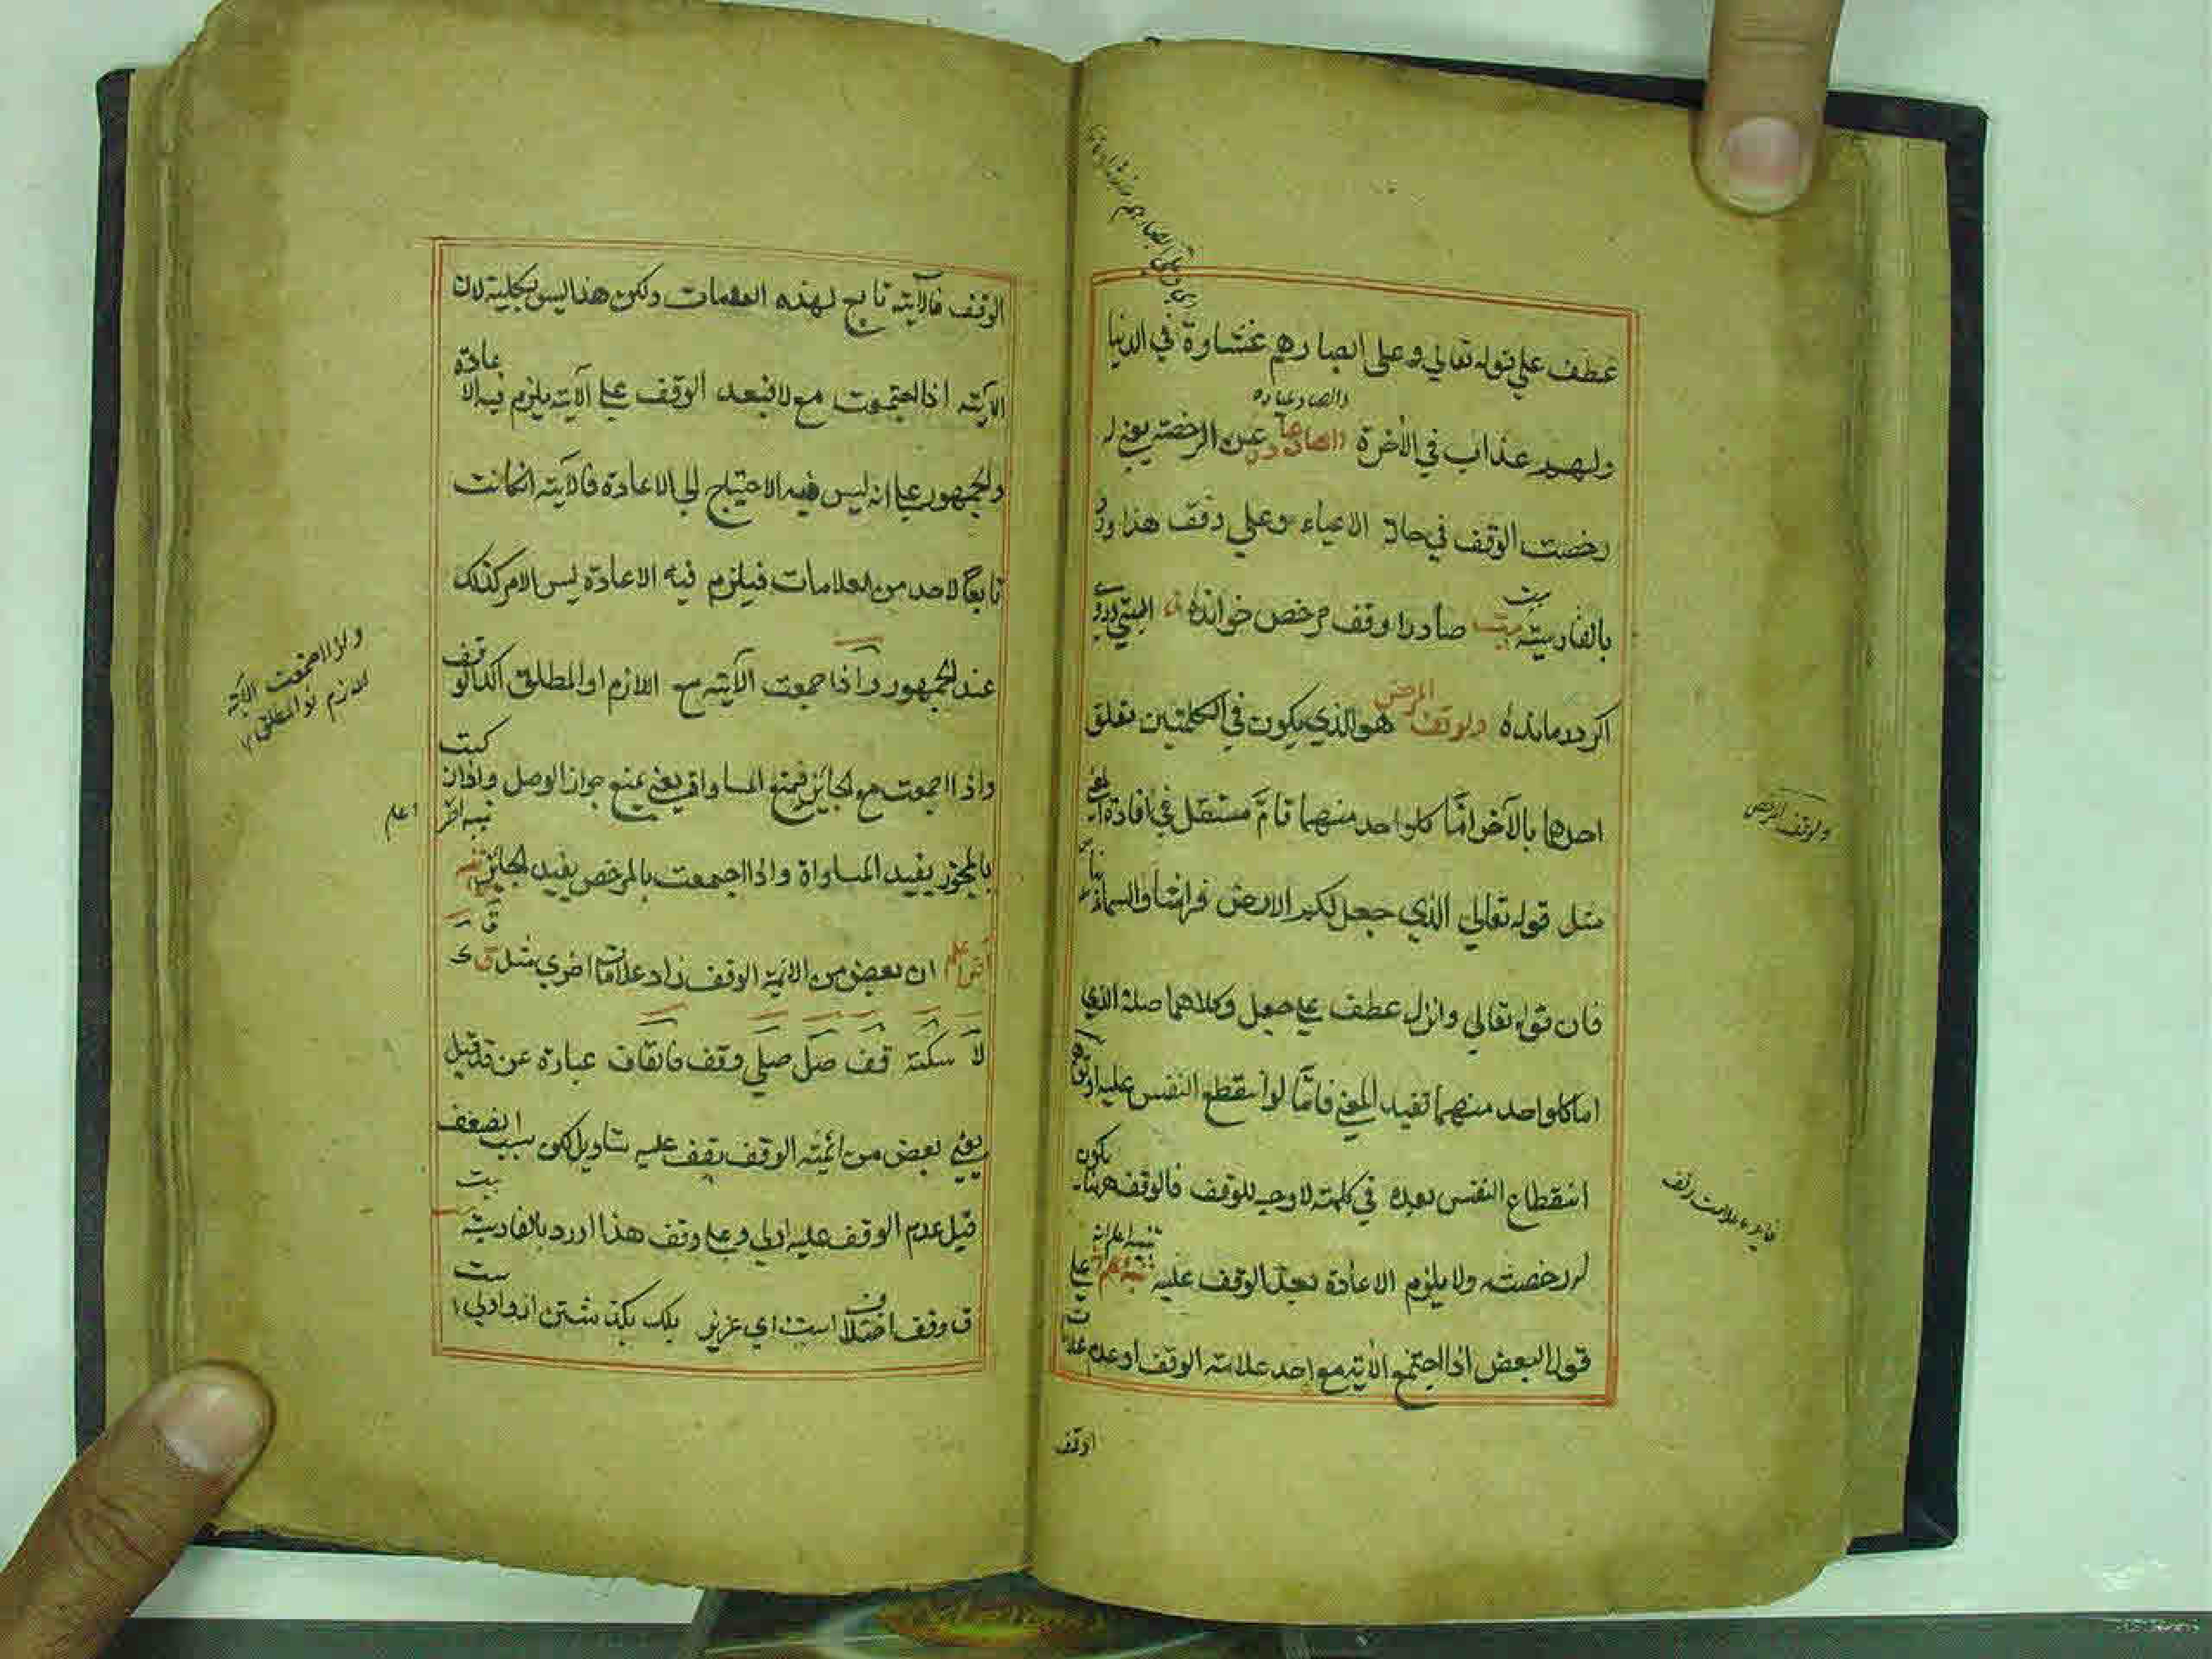 عطف علي قوله تعالي وعلى ابصارهم غشاوة في الدنيا
والصاد عباره
ولهم عذاب في الأخرة عن الرخصة يعني
رخصت الوقف في حالة الاعياء وعلي وقف هذا ورد
بالفارسية بيت صاد را وقف مرخص خوانده
اكر درمانده والوقف المرخص هو الذي يكون في الكلمتين تعلق
احدها بالآخر امّا كلواحد منهما تامّ مستقل في افادة المعني
مثل قوله تعالي الذي جعل لكم الارض فراشا والسماء بناء
فان قوله تعالي وانزل عطف علي جعل وكلاهما صلة الذي
اما كلواحد منهما تفيد المعني فامّا لو انقطع النفس عليه
انقطاع النفس بعده في كلمة لا وجه للوقف فالوقف يكون
لرخصته ولا يلزم الاعادة بعد الوقف عليه تنبيه اعلم ان علي
قول البعض اذا اجتمع الأية مع واحد علامة الوقف او عدم علامات
اوقف
والوقف المرخص
الوقف فالآية تابع لهذه العلامات ولكن هذا ليس بكلية لان
الآية اذا اجتمعت مع لا فبعد الوقف علي الآية يلزم فيه الاعادة
والجمهور علي انه ليس فيه الاحتياج الي الاعادة فالآية انكانت
تابعا لاحد من العلامات فيلزم فيه الاعادة ليس الامر كذلك
عند الجمهور واذا جمعت الآية مع اللازم او المطلق اكد الوقف
واذا اجمعت مع الجائز فيمنع المساواة يعني يمنع جواز الوصل واذا ركبت
بالمجوز يفيد المساواة واذا اجمعت بالمرخص يفيد الجائز تنبيه اخر
اعلم ان بعض من الائمة الوقف زاد علامات اخري مثل ق ك
لا سكتة قف صل صلي وقف فالقاف عبارة عن قد قيل
يعني بعض من ائمة الوقف يقف عليه بتاويل لكن بسبب الضعف
قيل عدم الوقف عليه اولي وعلي وقف هذا اورد بالفارسية بيت
ق وقف اختلاف است اي عزيز ليك بكذشتن ازو اولي است
واذا اجمعت الآية
اللازم او المطلق
اعلم